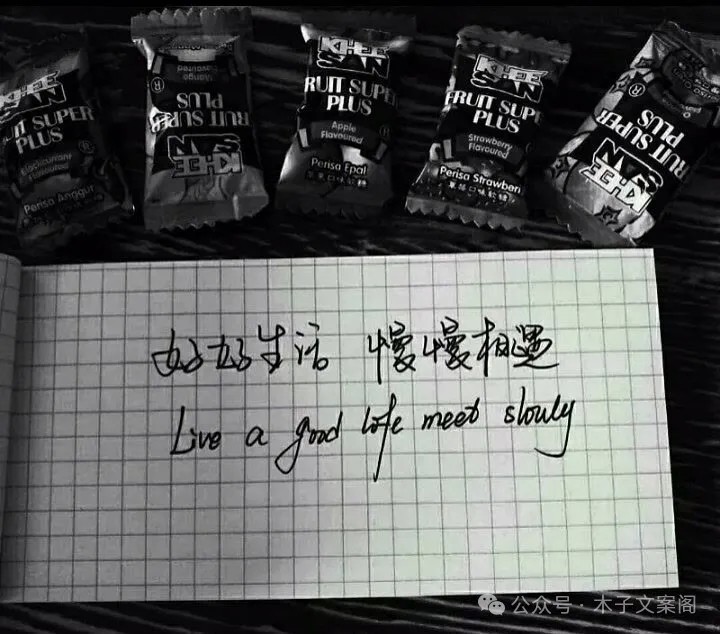 KHEE SAN
FRUIT SUPER PLUS
Blackcurrant Flavoured
Perisa Anggur
KHEE SAN
FRUIT SUPER PLUS
Mango Flavoured
KHEE SAN
FRUIT SUPER PLUS
Apple Flavoured
Perisa Epal
苹果口味软糖
KHEE SAN
FRUIT SUPER PLUS
Strawberry Flavoured
Perisa Strawberi
草莓口味软糖
KHEE SAN
FRUIT SUPER PLUS
好好生活 慢慢相遇
Live a good life meet slowly
公众号·木子文案阁